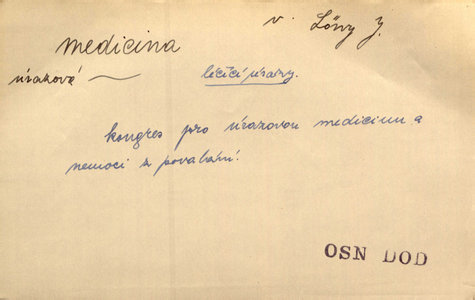 v. Lőny J.
medicina
úrazová
léčící úrazy.
kongres pro úrazovou medicinu a
nemoci z povolání.
OSN DOD